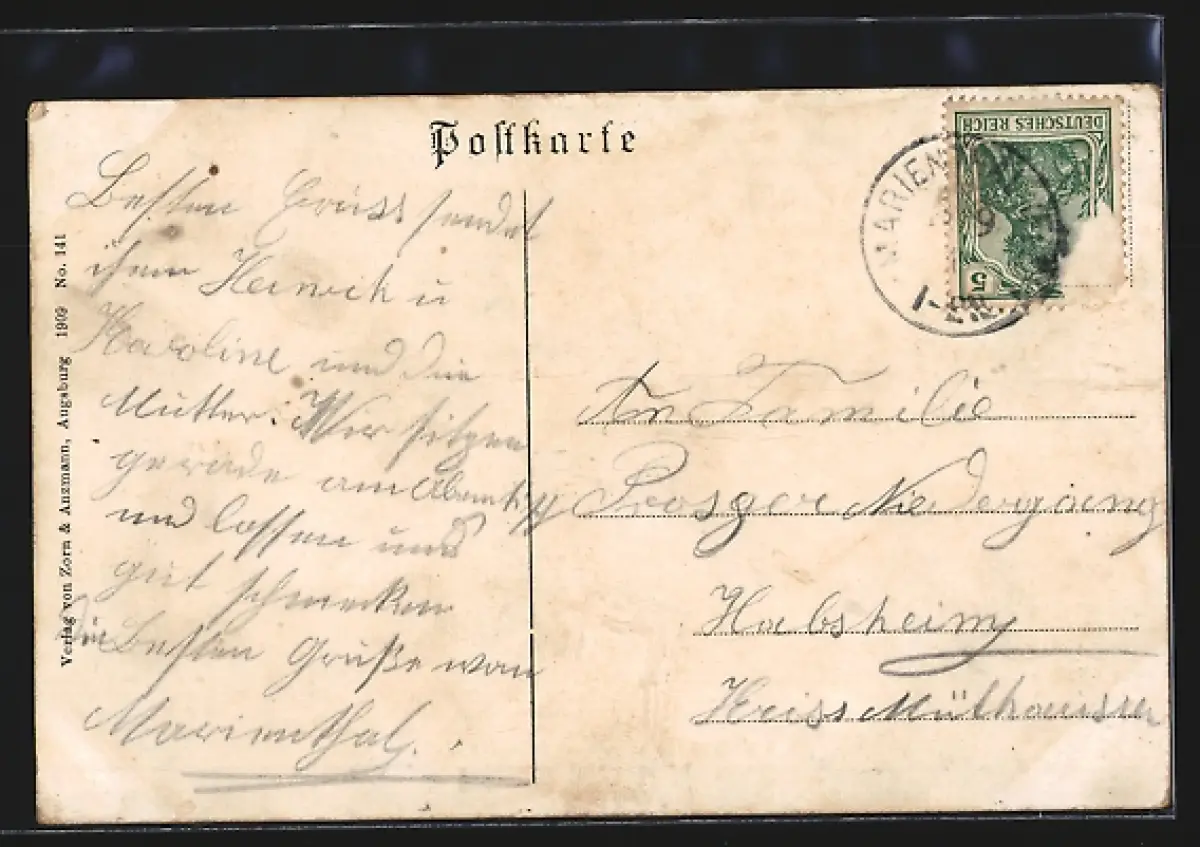 Postkarte
Besten Grüss sendet
ihem Heinrich u
Karoline und die
Mutter. Wir sitzen
gerade am
und lassen uns
güt schmecken
die Besten Grüße von
Marienthal.
Verlag von Zorn & Anzmann, Augsburg 1909 No. 141
DEUTSCHES REICH
5
MARIEN
An Familie
Prosper Niedergaeng
Habsheim
Kreiss Mülhaussen